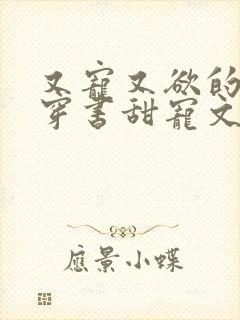 又寵又欲的
穿書甜寵文
應景小蝶